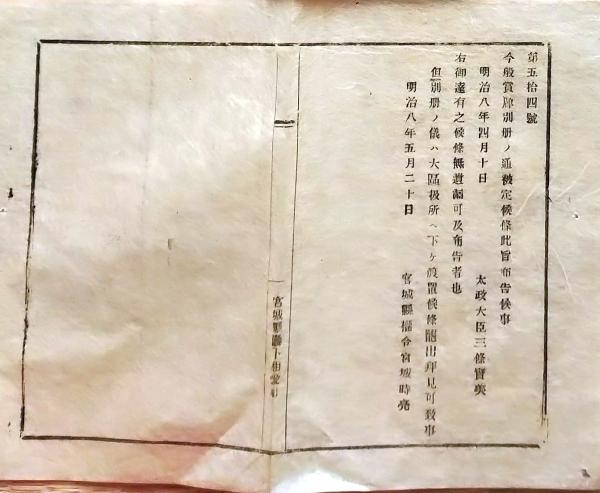 第五拾四號
今般賞牌別册ノ通被定候條此旨布告候事
明治八年四月十日
太政大臣三條實美
右御達有之候條無遺漏可及布告者也
但別册ノ儀ハ大區扱所ヘ下ケ渡置候條罷出拜見可致事
明治八年五月二十日
宮城縣權令宮城時亮
宮城縣